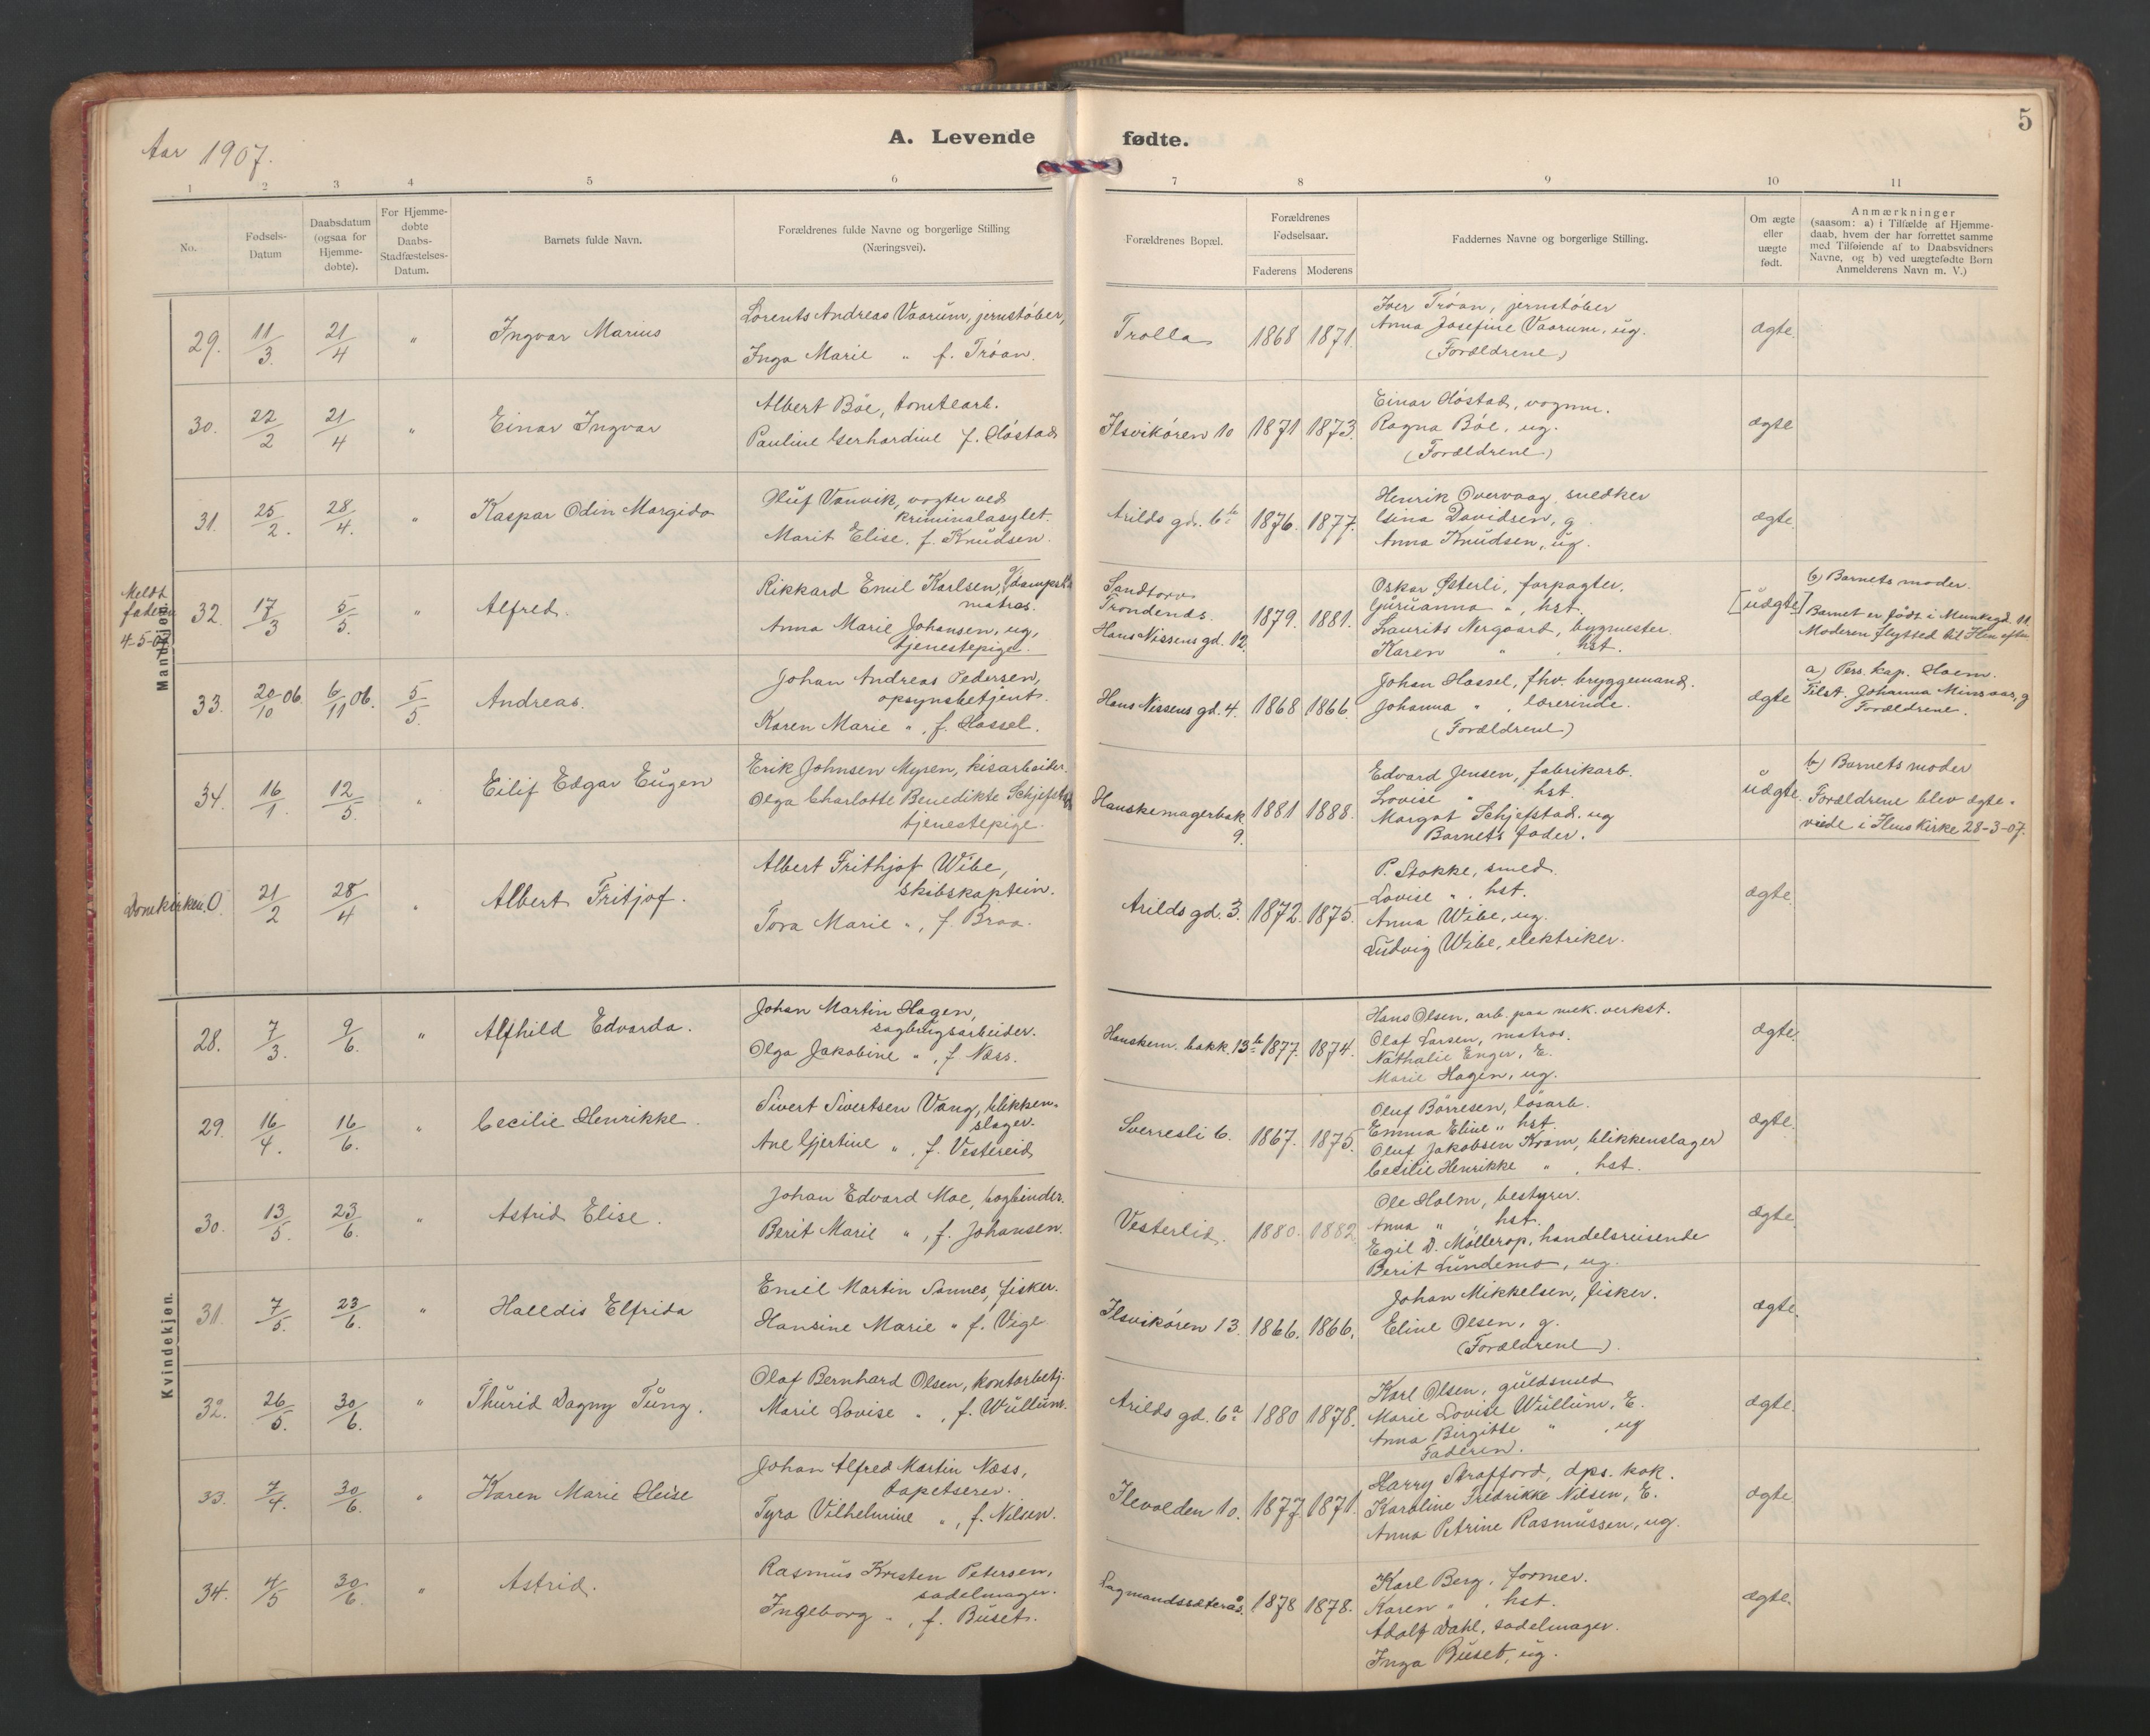 5
Aar 1907.
A. Levende fødte.
1 2 3 4 5 6 7 8 9 10 11
No.
Fødsels-
Datum
Daabsdatum
(ogsaa for
Hjemme-
døbte).
For Hjemme-
døbte
Daabs-
Stadfæstelses-
Datum.
Barnets fulde Navn.
Forældrenes fulde Navne og borgerlige Stilling
(Næringsvei).
Forældrenes Bopæl.
Forældrenes
Fødselsaar.
Faderens Moderens
Faddernes Navne og borgerlige Stilling.
Om ægte
eller
uægte
født.
Anmærkninger
(saasom: a) i Tilfælde af Hjemme-
daab, hvem der har forrettet samme
med Tilføiende af to Daabsvidners
Navne, og b) ved uægtefødte Børn
Anmelderens Navn m. V.)
Mandkjøn.
29. 11/3. 21/4 " Ingvar Marius
Lorents Andreas Vaarum, jernstøber,
Inga Marie " f. Trøan.
Trolla 1868 1871.
Iver Trøan, jernstøber
Anna Josefine Vaarum, ug.
(Forældrene)
ægte.
30. 22/2 21/4 " Einar Ingvar
Albert Bøe, tomtearb.
Pauline Gerhardine f. Høstad
Ilsvikøren 10 1871 1873.
Einar Høstad, vognm.
Ragna Bøe, ug.
(Forældrene)
ægte
31. 25/2. 28/4. " Kaspar Odin Margido
Oluf Vanvik, vogter ved
kriminalasylet.
Marit Elise, f. Knudsen.
Arilds gd. 6b 1876. 1877.
Henrik Overvaag, snedker
Davidsen, g.
Anna Knudsen, ug.
ægte.
Meldt
faderen
4-5-07
32. 17/3 5/5. " Alfred.
Rikkard Emil Karlsen,
matros.
Anna Marie Johansen, ug,
tjenestepige.
Sandtorv
Trondenes.
Hans Nissens gd. 12.
1879. 1881.
Oskar Østerli, forpagter.
Guruanna ", hst.
Laurits Nergaard, bygmester.
Karen " , hst.
[uægte]
b) Barnets moder.
Barnet er født i Munkegd. 11.
Moderen flytted til Ilen
33. 20/10 06. 6/11 06. 5/5. Andreas.
Johan Andreas Pedersen,
opsynsbetjent.
Karen Marie ", f. Hassel.
Hans Nissens gd. 4. 1868 1866.
Johan Hassel, fhv. bryggemand.
Johanna " , lærerinde.
(Forældrene)
ægte
a) Pers. kap. Hoem.
Tilst. Johanna Minsaas, g
Forældrene.
34. 16/1. 12/5. " Eilif Edgar Eugen
Erik Johnsen Myren, kisarbeider.
Olga Charlotte Benedikte Schjefstad
tjenestepige.
Hanskemagerbak.
9.
1881 1888.
Edvard Jensen, fabrikarb.
Lovise " hst.
Margot Schjefstad. ug
Barnets fader.
uægte.
b) Barnets moder
Forældrene blev ægte-
viede i Ilens Kirke 28-3-07.
Domkirken. O. 21/2 28/4 " Albert Fritjof.
Albert Frithjof Wibe,
skibskaptein.
Tora Marie ", f. Braa.
Arilds gd. 3. 1872. 1875.
P. Stokke, smed.
Lovise ", hst.
Anna Wibe, ug.
Ludvig Wibe, elektriker.
ægte.
Kvindekjøn.
28. 7/3. 9/6. " Alfhild Edvarda.
Johan Martin Hagen,
sagbrugsarbeider.
Olga Jakobine ", f. Næss.
Hanskem. bakk. 13b 1877. 1874.
Hans Olsen, arb. paa mek. verkst.
Olaf Larsen, matros.
Nathalie Enger, E.
Marie Hagen, ug.
ægte.
29. 16/4. 16/6. " Cecilie Henrikke.
Sivert Sivertsen Vang, blikken-
slager.
Ane Gjertine ", f. Vestereid
Sverresli 6. 1867. 1875.
Oluf Børresen, løsarb.
Emma Eline " hst.
Oluf Jakobsen Kvam, blikkenslager
Cecilie Henrikke " , hst.
ægte.
30. 13/5. 23/6. " Astrid Elise.
Johan Edvard Moe, bogbinder.
Berit Marie ", f. Johansen.
Vesterlid. 1880. 1882.
Ole Holm, bestyrer.
Anna " , hst.
Egil D. Møllerop, handelsreisende
Berit Lundemo, ug.
ægte.
31. 7/5. 23/6. " Halldis Elfrida
Emil Martin Sannes, fisker.
Hansine Marie " f. Vige
Ilsvikøren 13. 1866. 1866.
Johan Mikkelsen, fisker.
Eline Olsen, g.
(Forældrene).
ægte.
32. 26/5. 30/6. " Thurid Dagny Tung.
Olaf Bernhard Olsen, kontorbetj.
Marie Lovise ", f. Wullum.
Arilds gd. 6a 1880 1878.
Karl Olsen, guldsmed
Marie Lovise Wullum, E.
Anna Birgitte " , ug
Faderen.
ægte.
33. 7/4. 30/6. " Karen Marie Heise
Johan Alfred Martin Næss,
tapetserer.
Tyra Vilhelmine ", f. Nilsen.
Ilevolden 10. 1877 1871.
Harry Strafford, dps. kok.
Karoline Fredrikke Nilsen, E.
Anna Petrine Rasmussen, ug.
ægte
34. 4/5 30/6. " Astrid.
Rasmus Kristen Petersen,
sadelmager.
Ingeborg ", f. Buset.
Lagmandssæteraas. 1878 1878.
Karl Berg, former.
Karen " , hst.
Adolf Dahl, sadelmager.
Inga Buset, ug.
ægte.